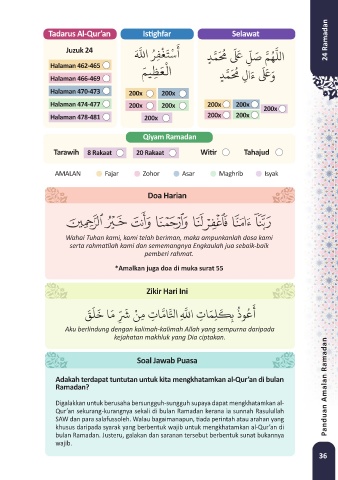 24 Ramadan
Tadarus Al-Qur'an
Istighfar
Selawat
Juzuk 24
Halaman 462-465
Halaman 466-469
Halaman 470-473
Halaman 474-477
Halaman 478-481
أَسْتَغْفِرُ اللَّهَ
الْعَظِيمَ
200x 200x
200x 200x
200x
اللَّهُمَّ صَلِّ عَلَى مُحَمَّدٍ
وَعَلَى آلِ مُحَمَّدٍ
200x 200x
200x
200x 200x
Qiyam Ramadan
Tarawih 8 Rakaat 20 Rakaat Witir Tahajud
AMALAN Fajar Zohor Asar Maghrib Isyak
Doa Harian
رَبَّنَا آمَنَّا فَاغْفِرْ لَنَا وَارْحَمْنَا وَأَنْتَ خَيْرُ الرَّاحِمِينَ
Wahai Tuhan kami, kami telah beriman, maka ampunkanlah dosa kami
serta rahmatilah kami dan sememangnya Engkaulah jua sebaik-baik
pemberi rahmat.
*Amalkan juga doa di muka surat 55
Zikir Hari Ini
أَعُوذُ بِكَلِمَاتِ اللَّهِ التَّامَّاتِ مِنْ شَرِّ مَا خَلَقَ
Aku berlindung dengan kalimah-kalimah Allah yang sempurna daripada
kejahatan makhluk yang Dia ciptakan.
Soal Jawab Puasa
Adakah terdapat tuntutan untuk kita mengkhatamkan al-Qur'an di bulan
Ramadan?
Digalakkan untuk berusaha bersungguh-sungguh supaya dapat mengkhatamkan al-
Qur'an sekurang-kurangnya sekali di bulan Ramadan kerana ia sunnah Rasulullah
SAW dan para salafussoleh. Walau bagaimanapun, tiada perintah atau arahan yang
khusus daripada syarak yang berbentuk wajib untuk mengkhatamkan al-Qur'an di
bulan Ramadan. Justeru, galakan dan saranan tersebut berbentuk sunat bukannya
wajib.
Panduan Amalan Ramadan
36